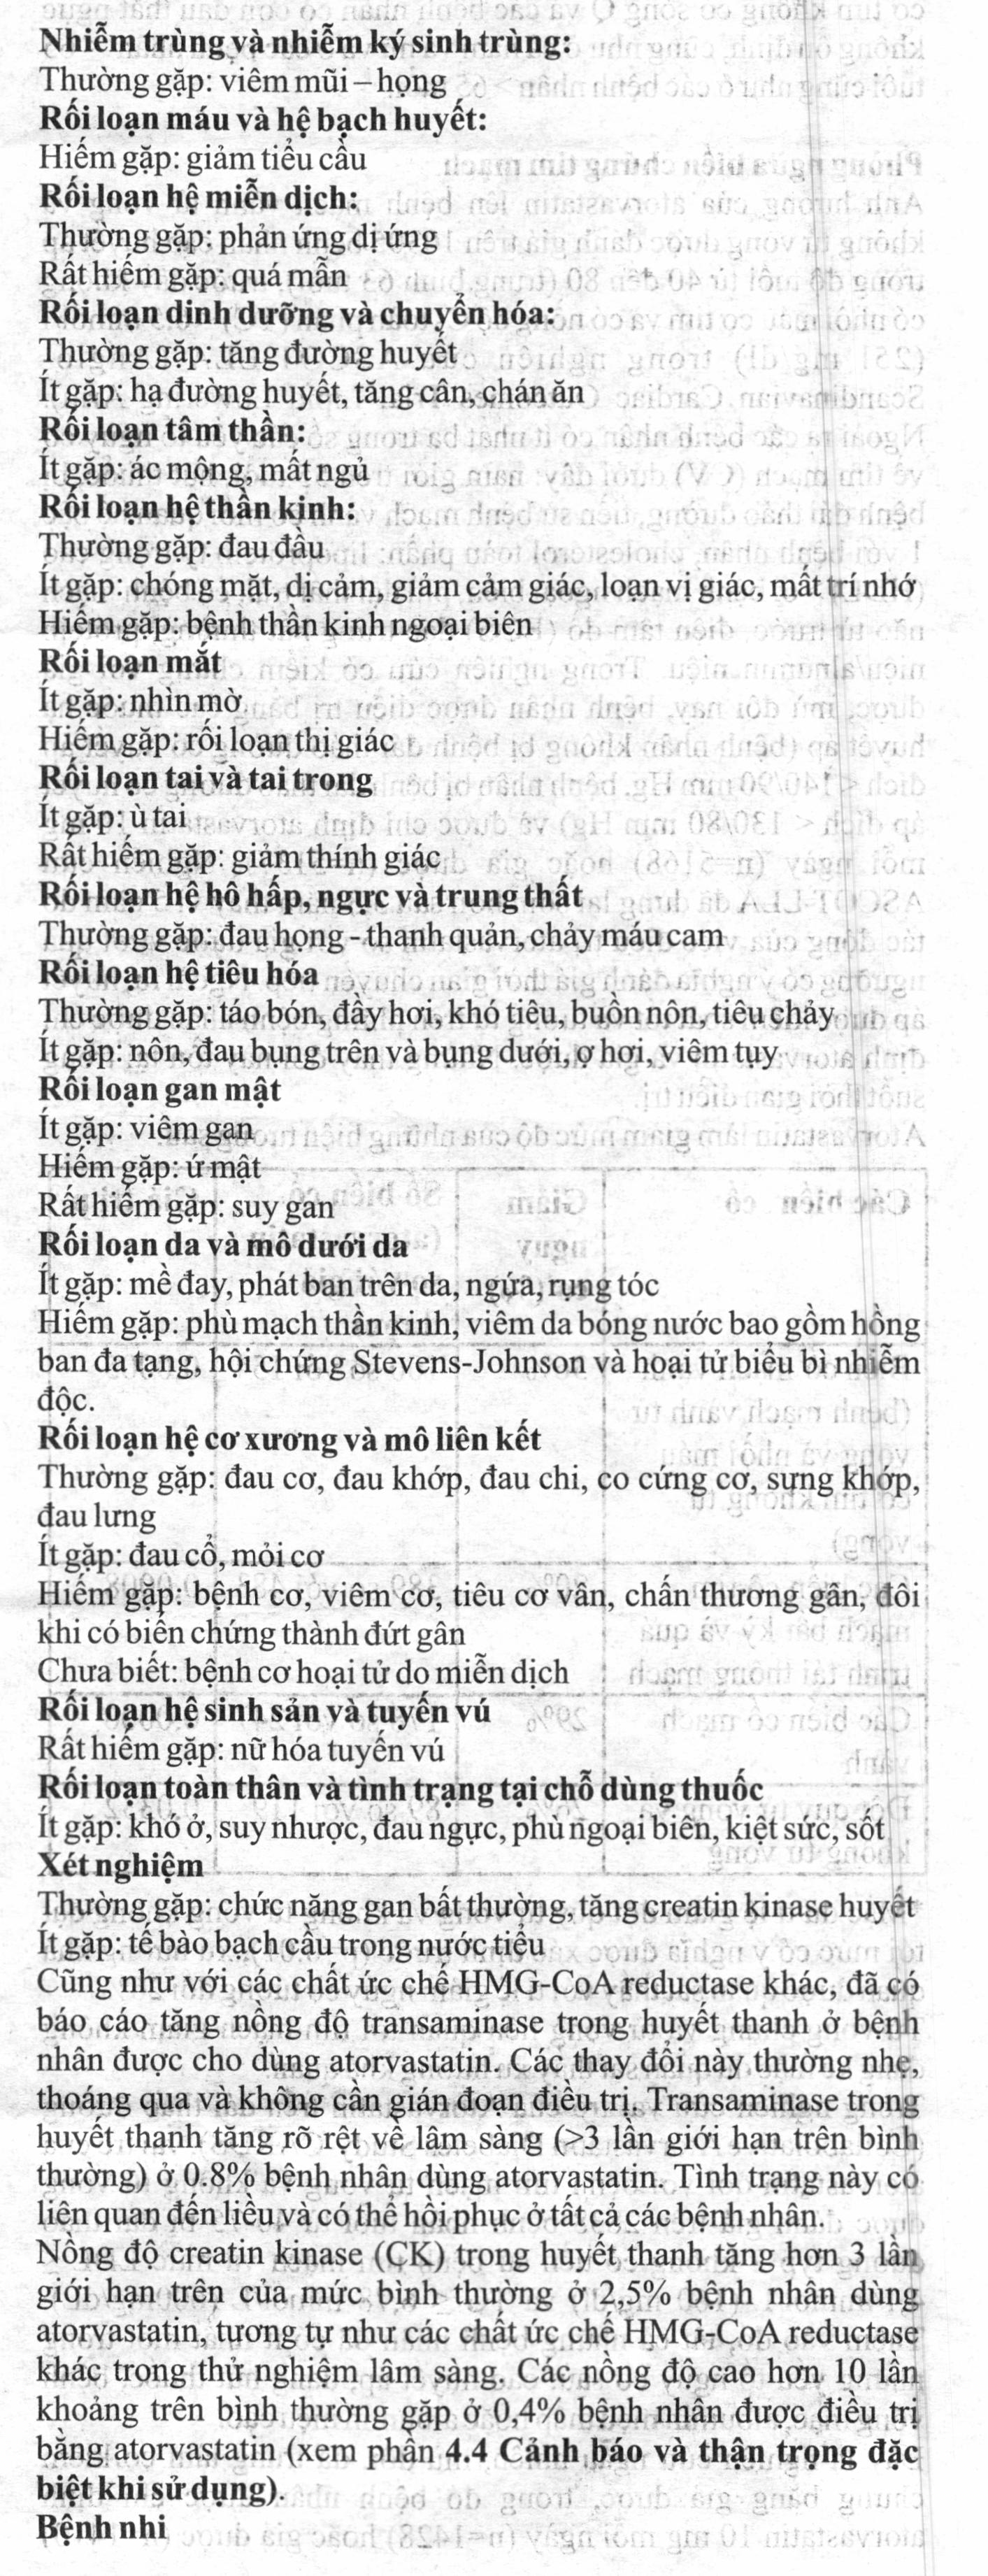 Nhiễm trùng và nhiễm ký sinh trùng:
Thường gặp: viêm mũi – họng
Rối loạn máu và hệ bạch huyết:
Hiếm gặp: giảm tiểu cầu
Rối loạn hệ miễn dịch:
Thường gặp: phản ứng dị ứng
Rất hiếm gặp: quá mẫn
Rối loạn dinh dưỡng và chuyển hóa:
Thường gặp: tăng đường huyết
Ít gặp: hạ đường huyết, tăng cân, chán ăn
Rối loạn tâm thần:
Ít gặp: ác mộng, mất ngủ
Rối loạn hệ thần kinh:
Thường gặp: đau đầu
Ít gặp: chóng mặt, dị cảm, giảm cảm giác, loạn vị giác, mất trí nhớ
Hiếm gặp: bệnh thần kinh ngoại biên
Rối loạn mắt
Ít gặp: nhìn mờ
Hiếm gặp: rối loạn thị giác
Rối loạn tai và tai trong
Ít gặp: ù tai
Rất hiếm gặp: giảm thính giác
Rối loạn hệ hô hấp, ngực và trung thất
Thường gặp: đau họng - thanh quản, chảy máu cam
Rối loạn hệ tiêu hóa
Thường gặp: táo bón, đầy hơi, khó tiêu, buồn nôn, tiêu chảy
Ít gặp: nôn, đau bụng trên và bụng dưới, ợ hơi, viêm tụy
Rối loạn gan mật
Ít gặp: viêm gan
Hiếm gặp: ứ mật
Rất hiếm gặp: suy gan
Rối loạn da và mô dưới da
Ít gặp: mề đay, phát ban trên da, ngứa, rụng tóc
Hiếm gặp: phù mạch thần kinh, viêm da bóng nước bao gồm hồng
ban đa tạng, hội chứng Stevens-Johnson và hoại tử biểu bì nhiễm
độc.
Rối loạn hệ cơ xương và mô liên kết
Thường gặp: đau cơ, đau khớp, đau chi, co cứng cơ, sưng khớp,
đau lưng
Ít gặp: đau cổ, mỏi cơ
Hiếm gặp: bệnh cơ, viêm cơ, tiêu cơ vân, chấn thương gân, đôi
khi có biến chứng thành đứt gân
Chưa biết: bệnh cơ hoại tử do miễn dịch
Rối loạn hệ sinh sản và tuyến vú
Rất hiếm gặp: nữ hóa tuyến vú
Rối loạn toàn thân và tình trạng tại chỗ dùng thuốc
Ít gặp: khó ở, suy nhược, đau ngực, phù ngoại biên, kiệt sức, sốt
Xét nghiệm
Thường gặp: chức năng gan bất thường, tăng creatin kinase huyết
Ít gặp: tế bào bạch cầu trong nước tiểu
Cũng như với các chất ức chế HMG-CoA reductase khác, đã có
báo cáo tăng nồng độ transaminase trong huyết thanh ở bệnh
nhân được cho dùng atorvastatin. Các thay đổi này thường nhẹ,
thoáng qua và không cần gián đoạn điều trị. Transaminase trong
huyết thanh tăng rõ rệt về lâm sàng (>3 lần giới hạn trên bình
thường) ở 0.8% bệnh nhân dùng atorvastatin. Tình trạng này có
liên quan đến liều và có thể hồi phục ở tất cả các bệnh nhân.
Nồng độ creatin kinase (CK) trong huyết thanh tăng hơn 3 lần
giới hạn trên của mức bình thường ở 2,5% bệnh nhân dùng
atorvastatin, tương tự như các chất ức chế HMG-CoA reductase
khác trong thử nghiệm lâm sàng. Các nồng độ cao hơn 10 lần
khoảng trên bình thường gặp ở 0,4% bệnh nhân được điều trị
bằng atorvastatin (xem phần 4.4 Cảnh báo và thận trọng đặc
biệt khi sử dụng).
Bệnh nhi